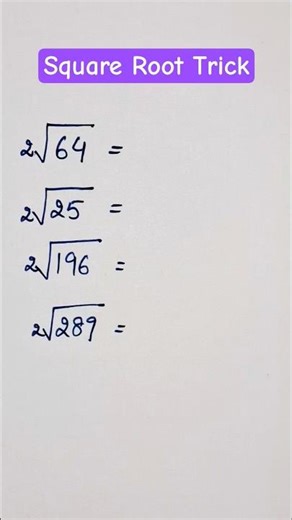 Square Root Trick
2√64 =
2√25 =
2√196 =
2√289 =